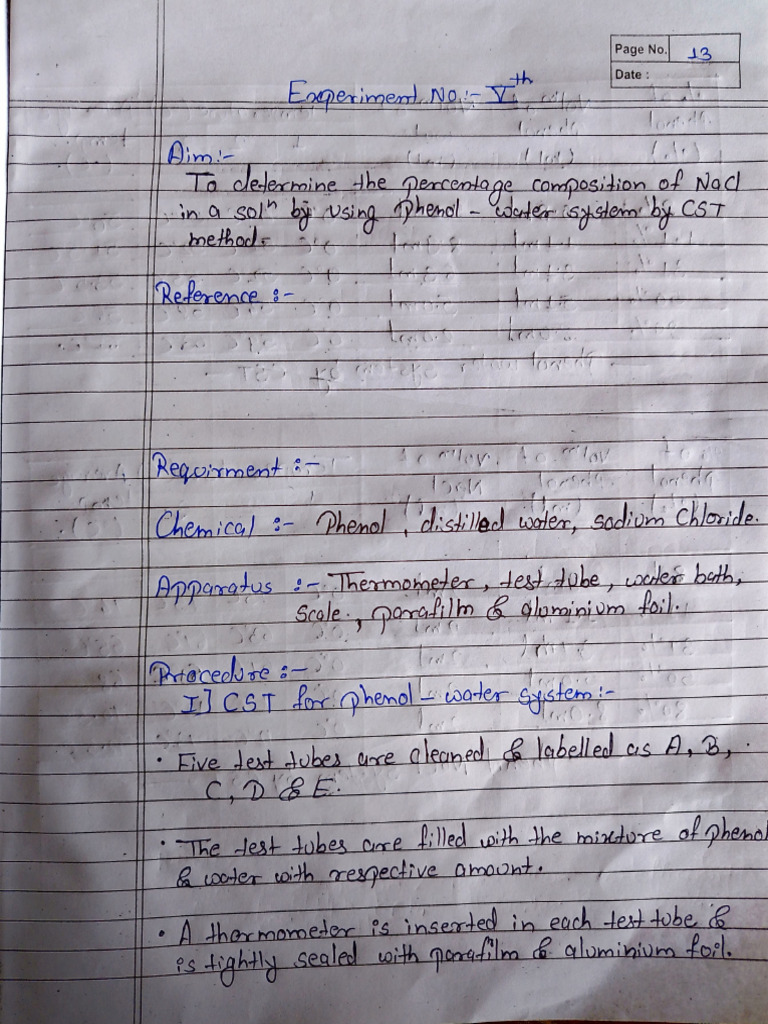 Page No. 13
Date :
Experiment No:- Vth
Aim:-
To determine the percentage composition of NaCl
in a solⁿ by using phenol - water system by CST
method.
Reference :-
Requirment :-
Chemical :- Phenol, distilled water, sodium Chloride.
Apparatus :- Thermometer, test tube, water bath,
Scale, parafilm & aluminium foil.
Procedure :-
I] CST for phenol - water system:-
• Five test tubes are cleaned & labelled as A, B,
C, D & E.
• The test tubes are filled with the mixture of phenol
& water with respective amount.
• A thermometer is inserted in each test tube &
is tightly sealed with parafilm & aluminium foil.